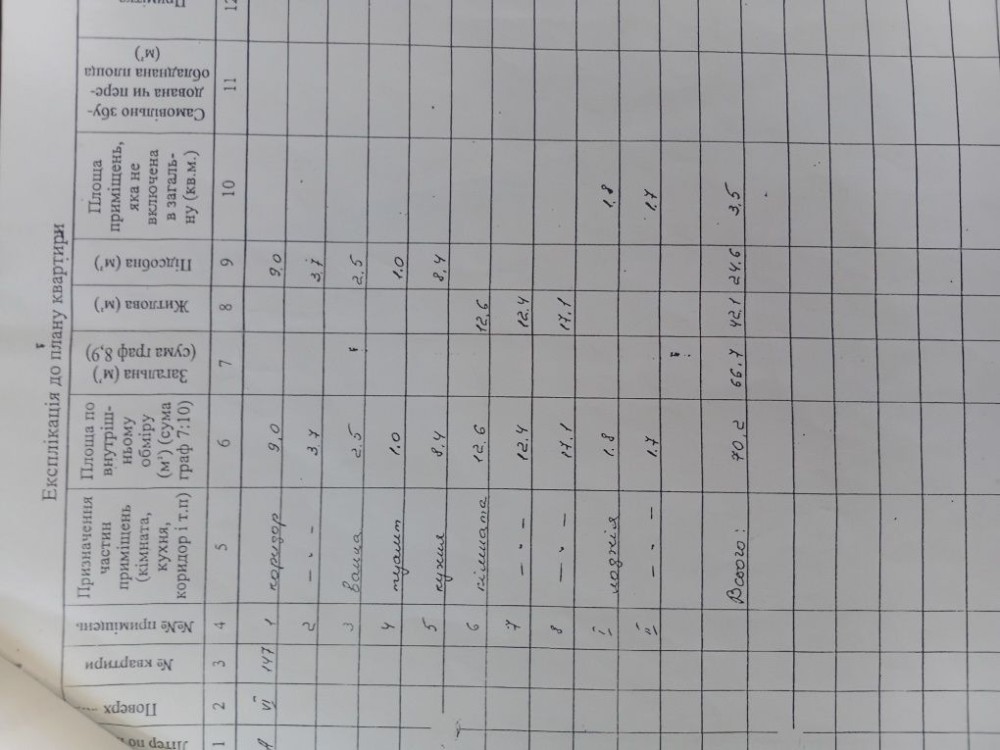 Експлікація до плану квартири
Літер по
Поверх
№ квартири
№№ приміщень
Призначення частин приміщень (кімната, кухня, коридор і т.п)
Площа по внутріш- ньому обміру (м²) (сума граф 7:10)
Загальна (м²) (сума граф 8,9)
Житлова (м²)
Підсобна (м²)
Площа приміщень, яка не включена в загаль- ну (кв.м.)
Самовільно збу- дована чи пере- обладнана площа (м²)
Примітка
1 2 3 4 5 6 7 8 9 10 11 12
А VI 147 1 коридор 9,0 9,0
2 — " — 3,7 3,7
3 ванна 2,5 2,5
4 туалет 1.0 1.0
5 кухня 8,4 8,4
6 кімната 12.6 12,6
7 — " — 12.4 12.4
8 — " — 17,1 17,1
I лоджія 1.8 1,8
II — " — 1.7 1,7
Всього: 70,2 66.7 42,1 24,6 3,5